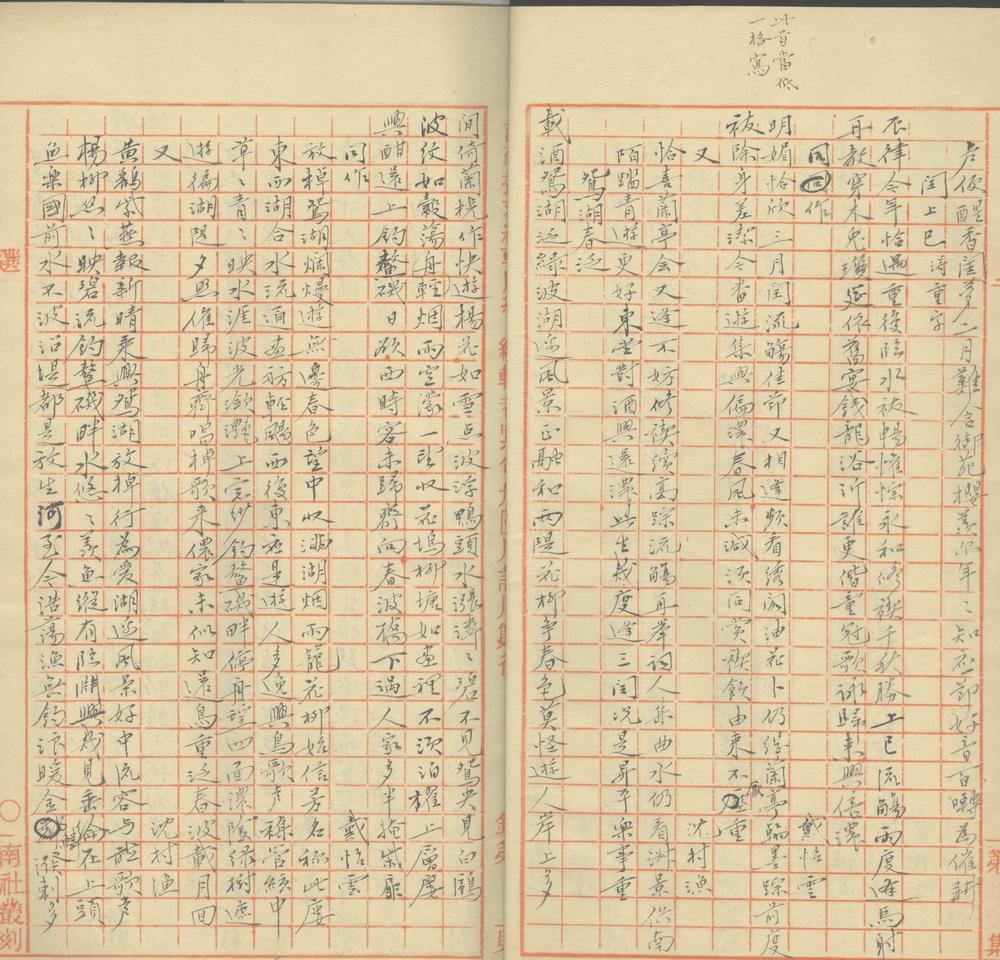 此首當低
一格寫
唇復醒香閨夢二月難含御苑櫻羨尔年〻知応節好音百囀為催耕
閏上巳 得重字
不律今年恰遇重復臨水祓暢懽悰永和修禊千秋勝上巳流觴兩度逢馬射
再教穿木兔瓊筵依舊宴錢龍浴沂誰更偕童冠歌詠歸來興倍濃
同作 戴怡雲
明媚恰欣三月閏流觴佳節又相逢頻看綉閣油花卜仍繼蘭亭翰墨踪前度
祓除身差潔今番遊集興偏濃春風未減須同賞禊飲由來不厭重
又 沈村漁
恰喜蘭亭会又逢不妨修禊續高踪流觴再舉詞人集曲水仍看淑景供南
陌踏青遊更好東堂對酒興還濃此生幾度逢三閏況是昇平樂事重
鴛湖春泛
載酒鴛湖泛綠波湖流風景正融和兩隄花柳爭春色莫怪遊人岸上多
閒倚蘭橈作快遊楊花如雪点波浮鴨頭水漲潾〻碧不見鴛央見白鷗
波紋如縠蕩舟輕烟雨空濛一望收花塢柳塘如画裡不須泊櫂上層屢
興酣還上釣鰲磯日欲西時客未歸齊向春波橋下過人家多半掩柴扉
同作 戴怡雲
放棹鴛湖爛熳遊無邊春色望中收滿湖烟雨籠花柳始信芳名称此廔
東西湖合水流通画舫輕鷗西復東應是遊人多逸興鳥歌声雜管絃中
草〻青〻映水涯波光瀲灩上窓紗釣鰲磯畔停舟望四面濃陰綠樹遮
遊徧湖隄夕照催歸舟齊唱棹歌來儂家未似知還鳥重泛春波載月回
又 沈村漁
黄鸝紫燕報新晴乘興鴛湖放棹行為愛湖边風景好中流容与聽歌声
楊柳絲〻映碧流釣鰲磯畔水悠〻羨魚縱有臨淵興幾見垂綸在上頭
魚樂國前水不波沿堤都是放生河至今浩蕩漁無釣汴暖金鱗潑剌多
選
南社叢刻
第 集